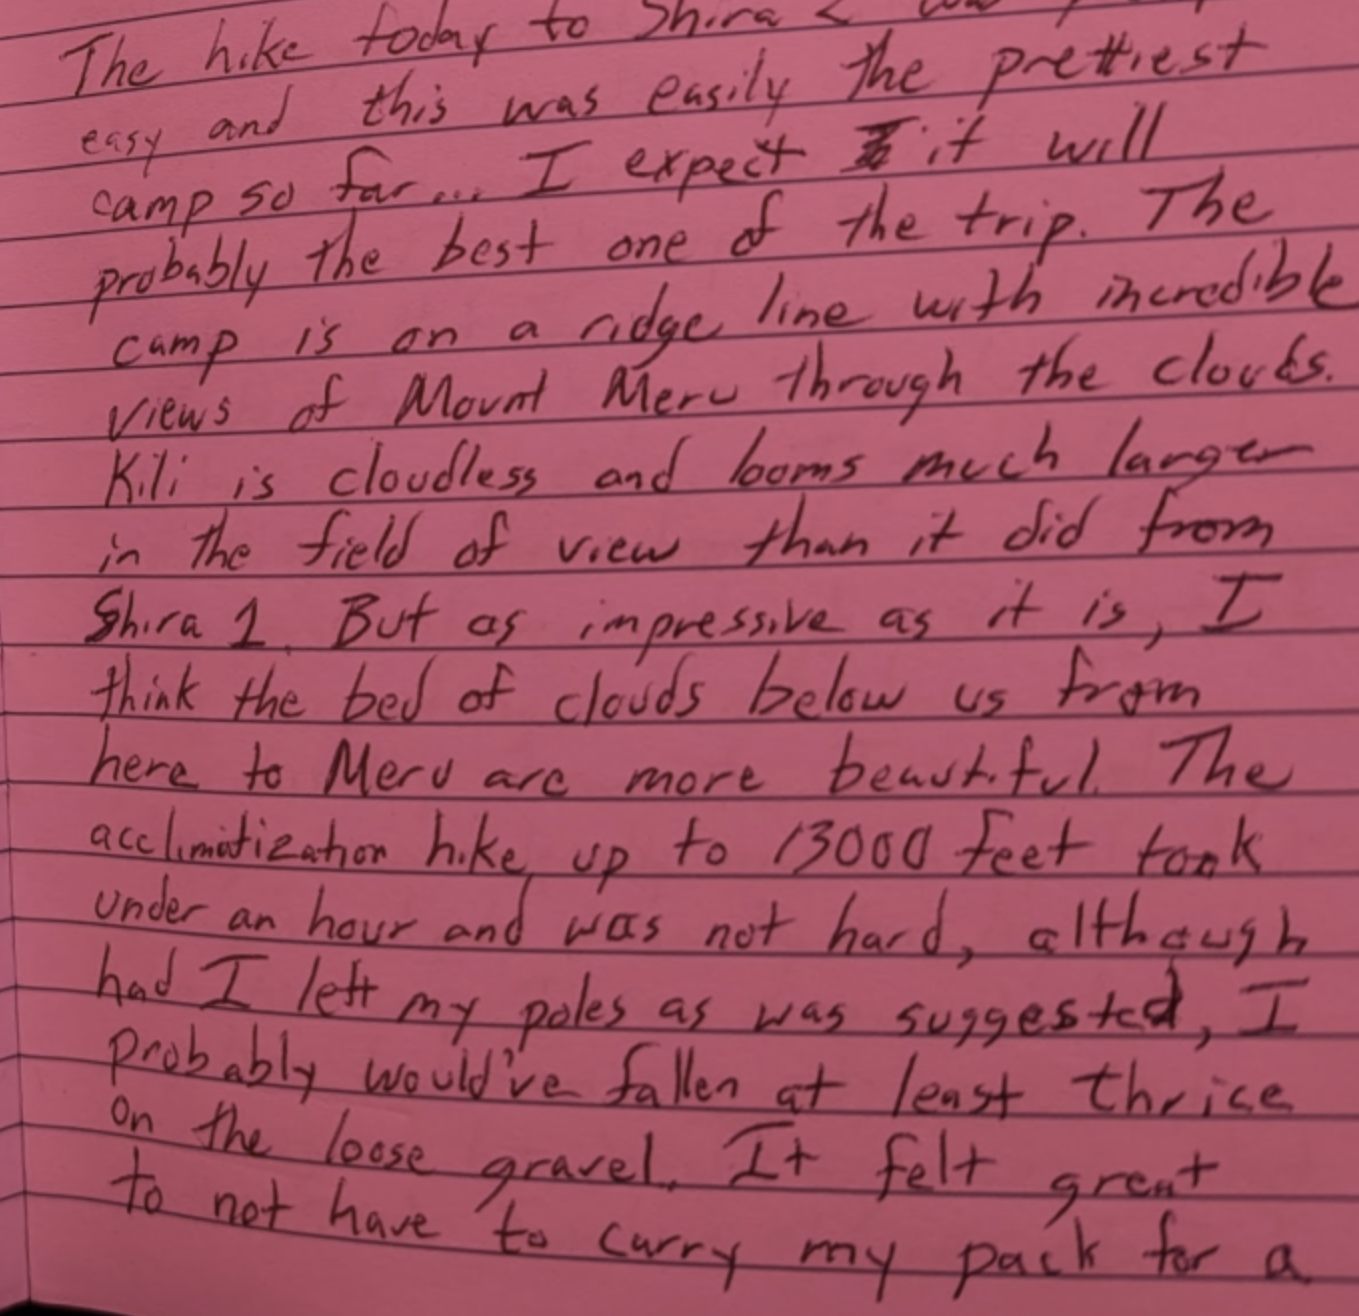 The hike today to Shira 2 was
easy and this was easily the prettiest
camp so far... I expect it will
probably the best one of the trip. The
camp is on a ridge line with incredible
views of Mount Meru through the clouds.
Kili is cloudless and looms much larger
in the field of view than it did from
Shira 1. But as impressive as it is, I
think the bed of clouds below us from
here to Meru are more beautiful. The
acclimatization hike up to 13000 feet took
under an hour and was not hard, although
had I left my poles as was suggested, I
probably would've fallen at least thrice
on the loose gravel. It felt great
to not have to carry my pack for a